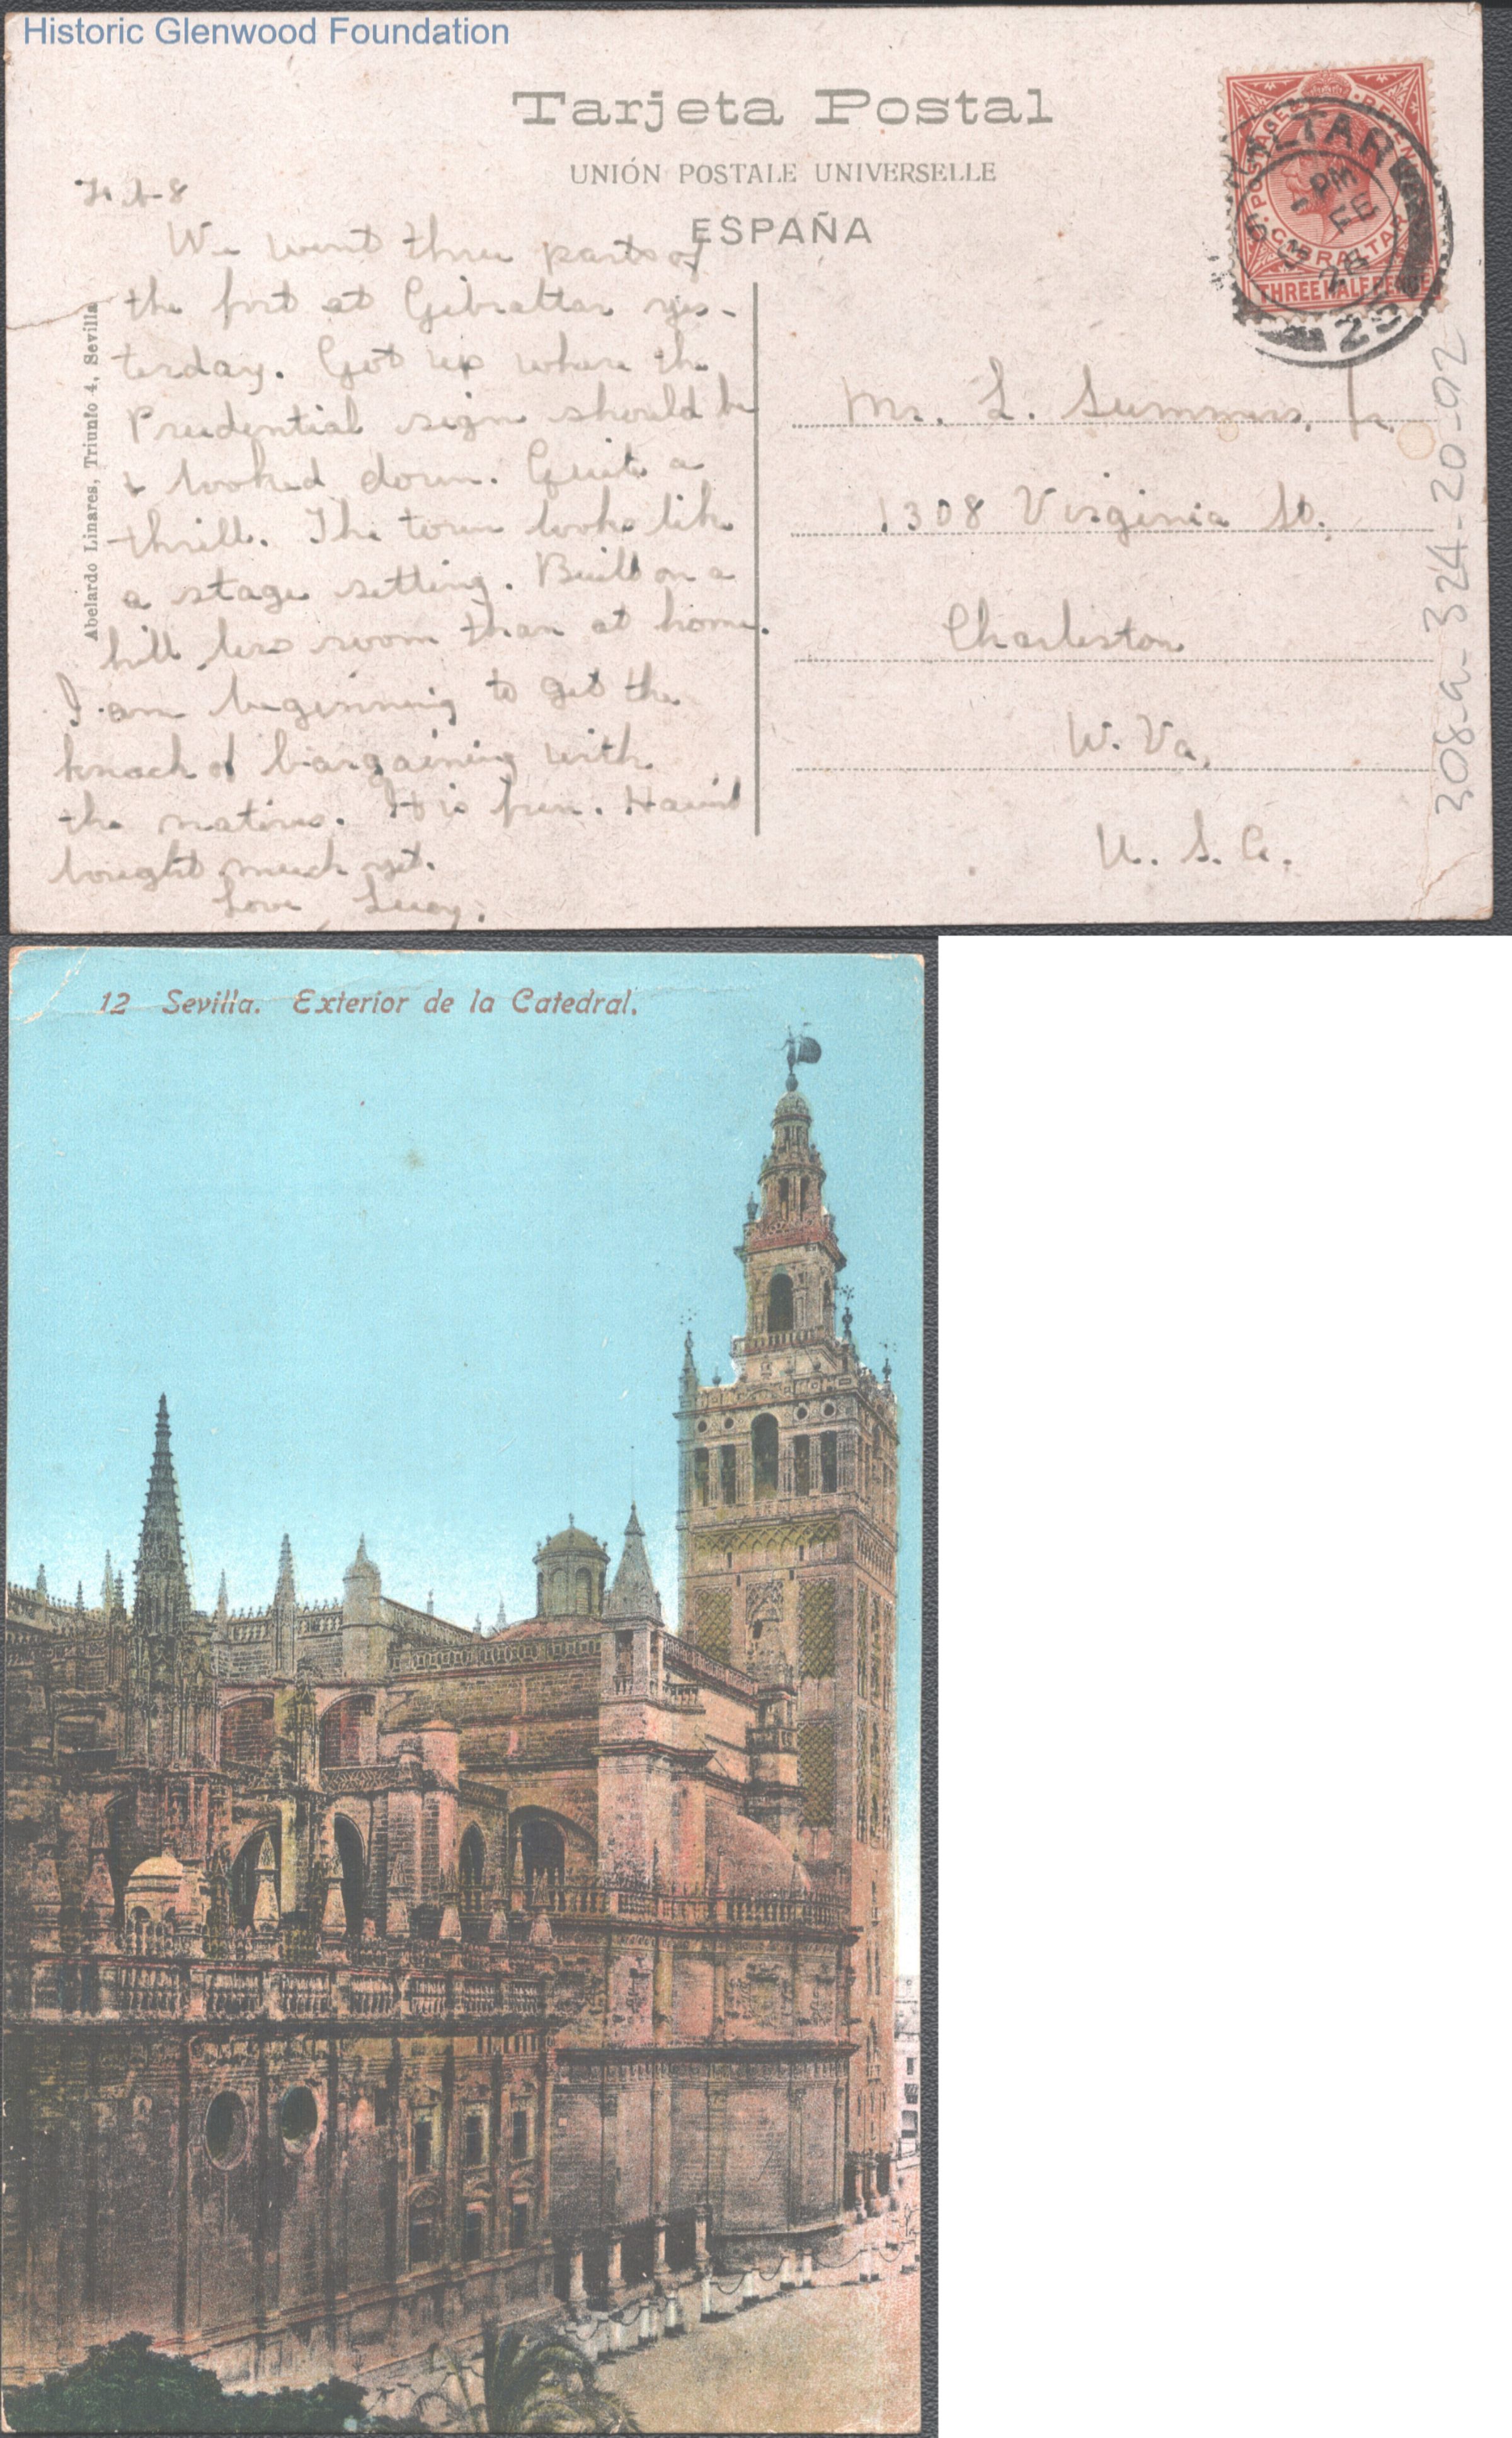 Historic Glenwood Foundation
Tarjeta Postal
UNIÓN POSTALE UNIVERSELLE
ESPAÑA
Abelardo Linares, Triunfo 4, Sevilla
We went thru parts of
the fort at Gibraltar yes-
terday. Got up where the
Prudential sign should be
& looked down. Quite a
thrill. The town looks like
a stage setting. Built on a
hill less room than at home.
I am beginning to get the
knack of bargaining with
the natives. It is fun. Haven't
bought much yet.
Love Lucy.
POSTAGE & REVENUE
GIBRALTAR
THREE HALF PENCE
GIBRALTAR
PM
FE
28
Mr. L. Summers, Jr.
1308 Virginia St.
Charleston
W. Va.
U. S. A.
308-a-324-20-92
12 Sevilla. Exterior de la Catedral.